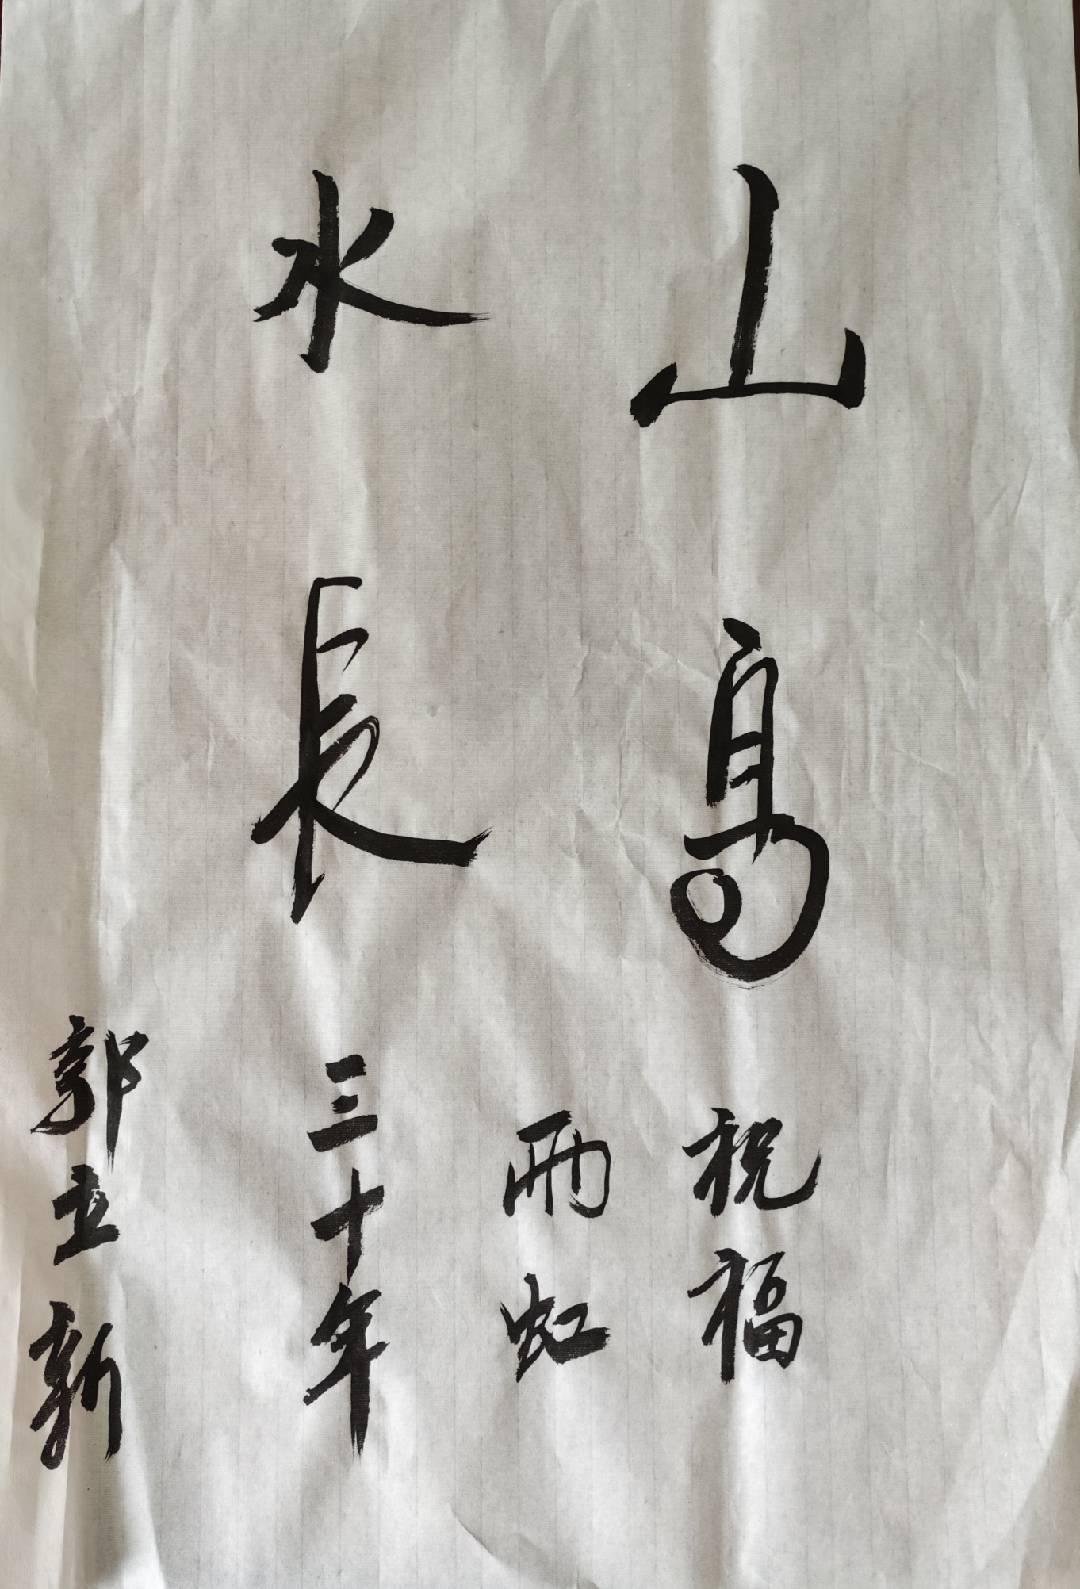 山高
水長
祝福
雨虹
三十年
郭立新